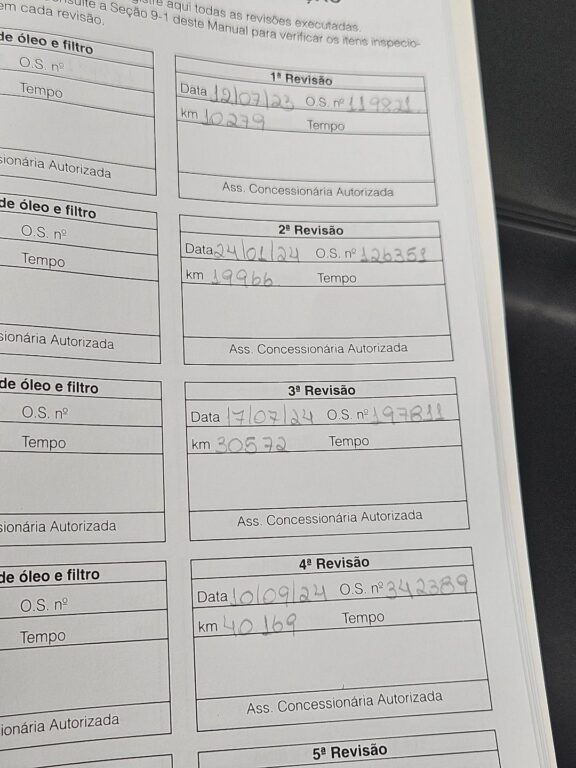 nsulte a Seção 9-1 deste Manual para verificar os itens inspecio-
em cada revisão.
aqui todas as revisões executadas.
de óleo e filtro
O.S. nº
Tempo
sionária Autorizada
1ª Revisão
Data 12/07/23 O.S. nº 119821
km 10279 Tempo
Ass. Concessionária Autorizada
de óleo e filtro
O.S. nº
Tempo
sionária Autorizada
2ª Revisão
Data 24/01/24 O.S. nº 126351
km 19966 Tempo
Ass. Concessionária Autorizada
de óleo e filtro
O.S. nº
Tempo
sionária Autorizada
3ª Revisão
Data 17/07/24 O.S. nº 197811
km 30572 Tempo
Ass. Concessionária Autorizada
de óleo e filtro
O.S. nº
Tempo
ionária Autorizada
4ª Revisão
Data 10/09/24 O.S. nº 342389
km 40169 Tempo
Ass. Concessionária Autorizada
5ª Revisão